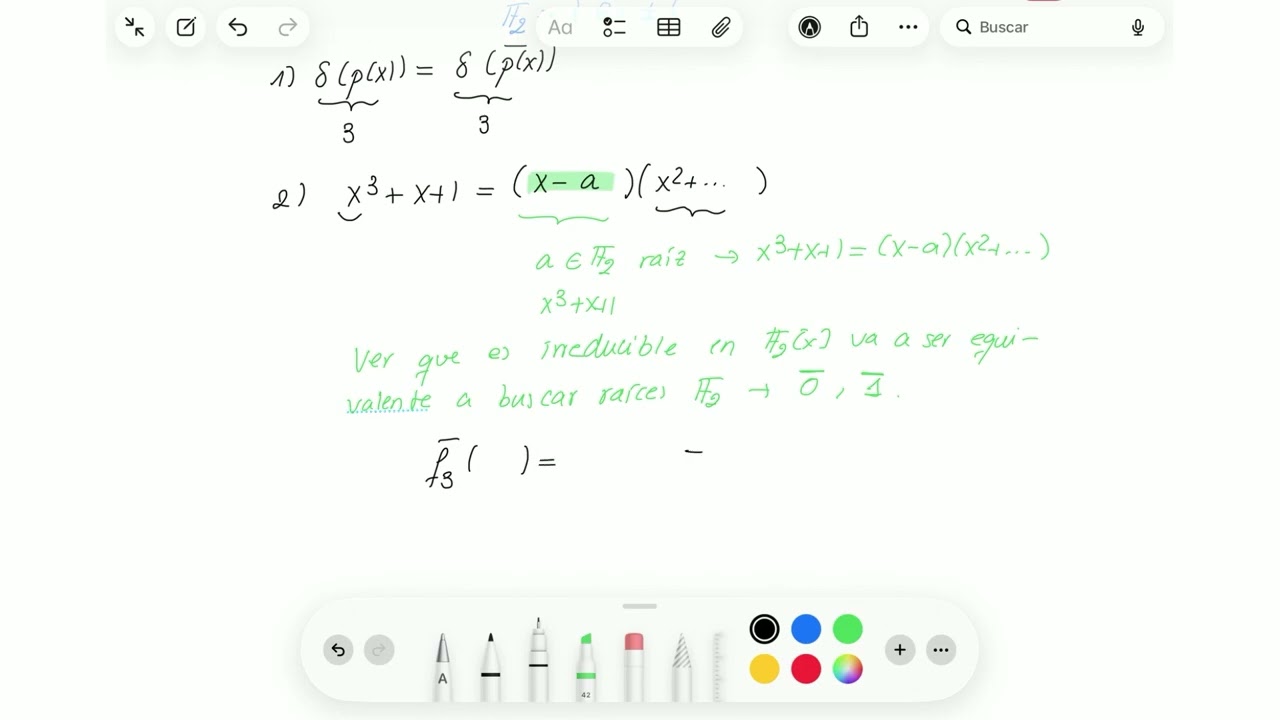 Aa
Buscar
1) δ(p(x)) = δ(p̅(x))
3 3
2) x³ + x+1 = (x - a )(x²+... )
a ∈ 𝔽₂ raíz → x³+x+1 = (x-a)(x²+...)
x³+x+1
Ver que es irreducible en 𝔽₂[x] va a ser equi-
valente a buscar raíces 𝔽₂ → 0̅ , 1̅ .
f̅₃( ) = -
A
42